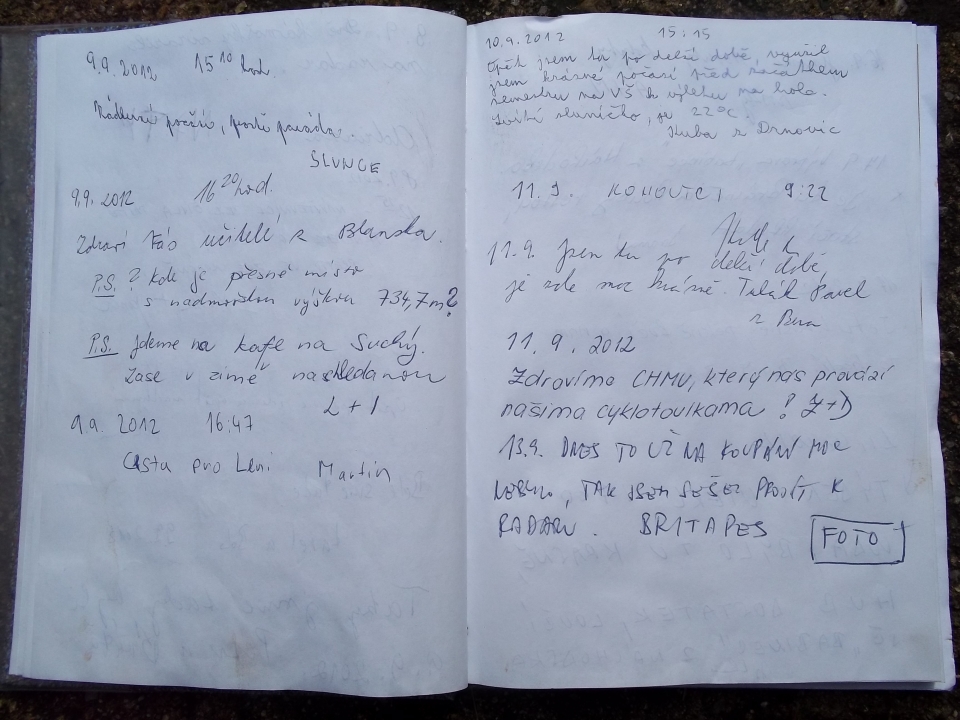 9.9.2012 15 10 hod.
Nádherné počasí, prostě paráda.
SLUNCE
9.9. 2012 16 20 hod.
Zdraví Vás učitelé z Blanska.
P.S. ? kde je přesně místo
s nadmořskou výškou 734,7m?
P.S. Jdeme na kafe na Suchý.
Zase v zimě nashledanou
L + I
9.9. 2012 16:47
Cesta pro Leni Martin
10.9.2012 15:15
Opět jsem tu po delší době, využil
jsem krásné počasí před začátkem
semestru na VŠ k výletu na kole.
Svítí sluníčko, je 22°C
Kuba z Drnovic
11.9. KOHOVICI 9:22
11.9. Jsem tu po delší době,
je zde moc krásně. Pavel
z Brna
11.9.2012
Zdravíme CHMU, který nás provází
našima cyklotoulkama! Z+D
13.9. DNES TO UŽ NA KOUPÁNÍ MOC
NEBYLO, TAK JSEM SEŠEL PROJÍT K
RADARU. BRITAPES FOTO